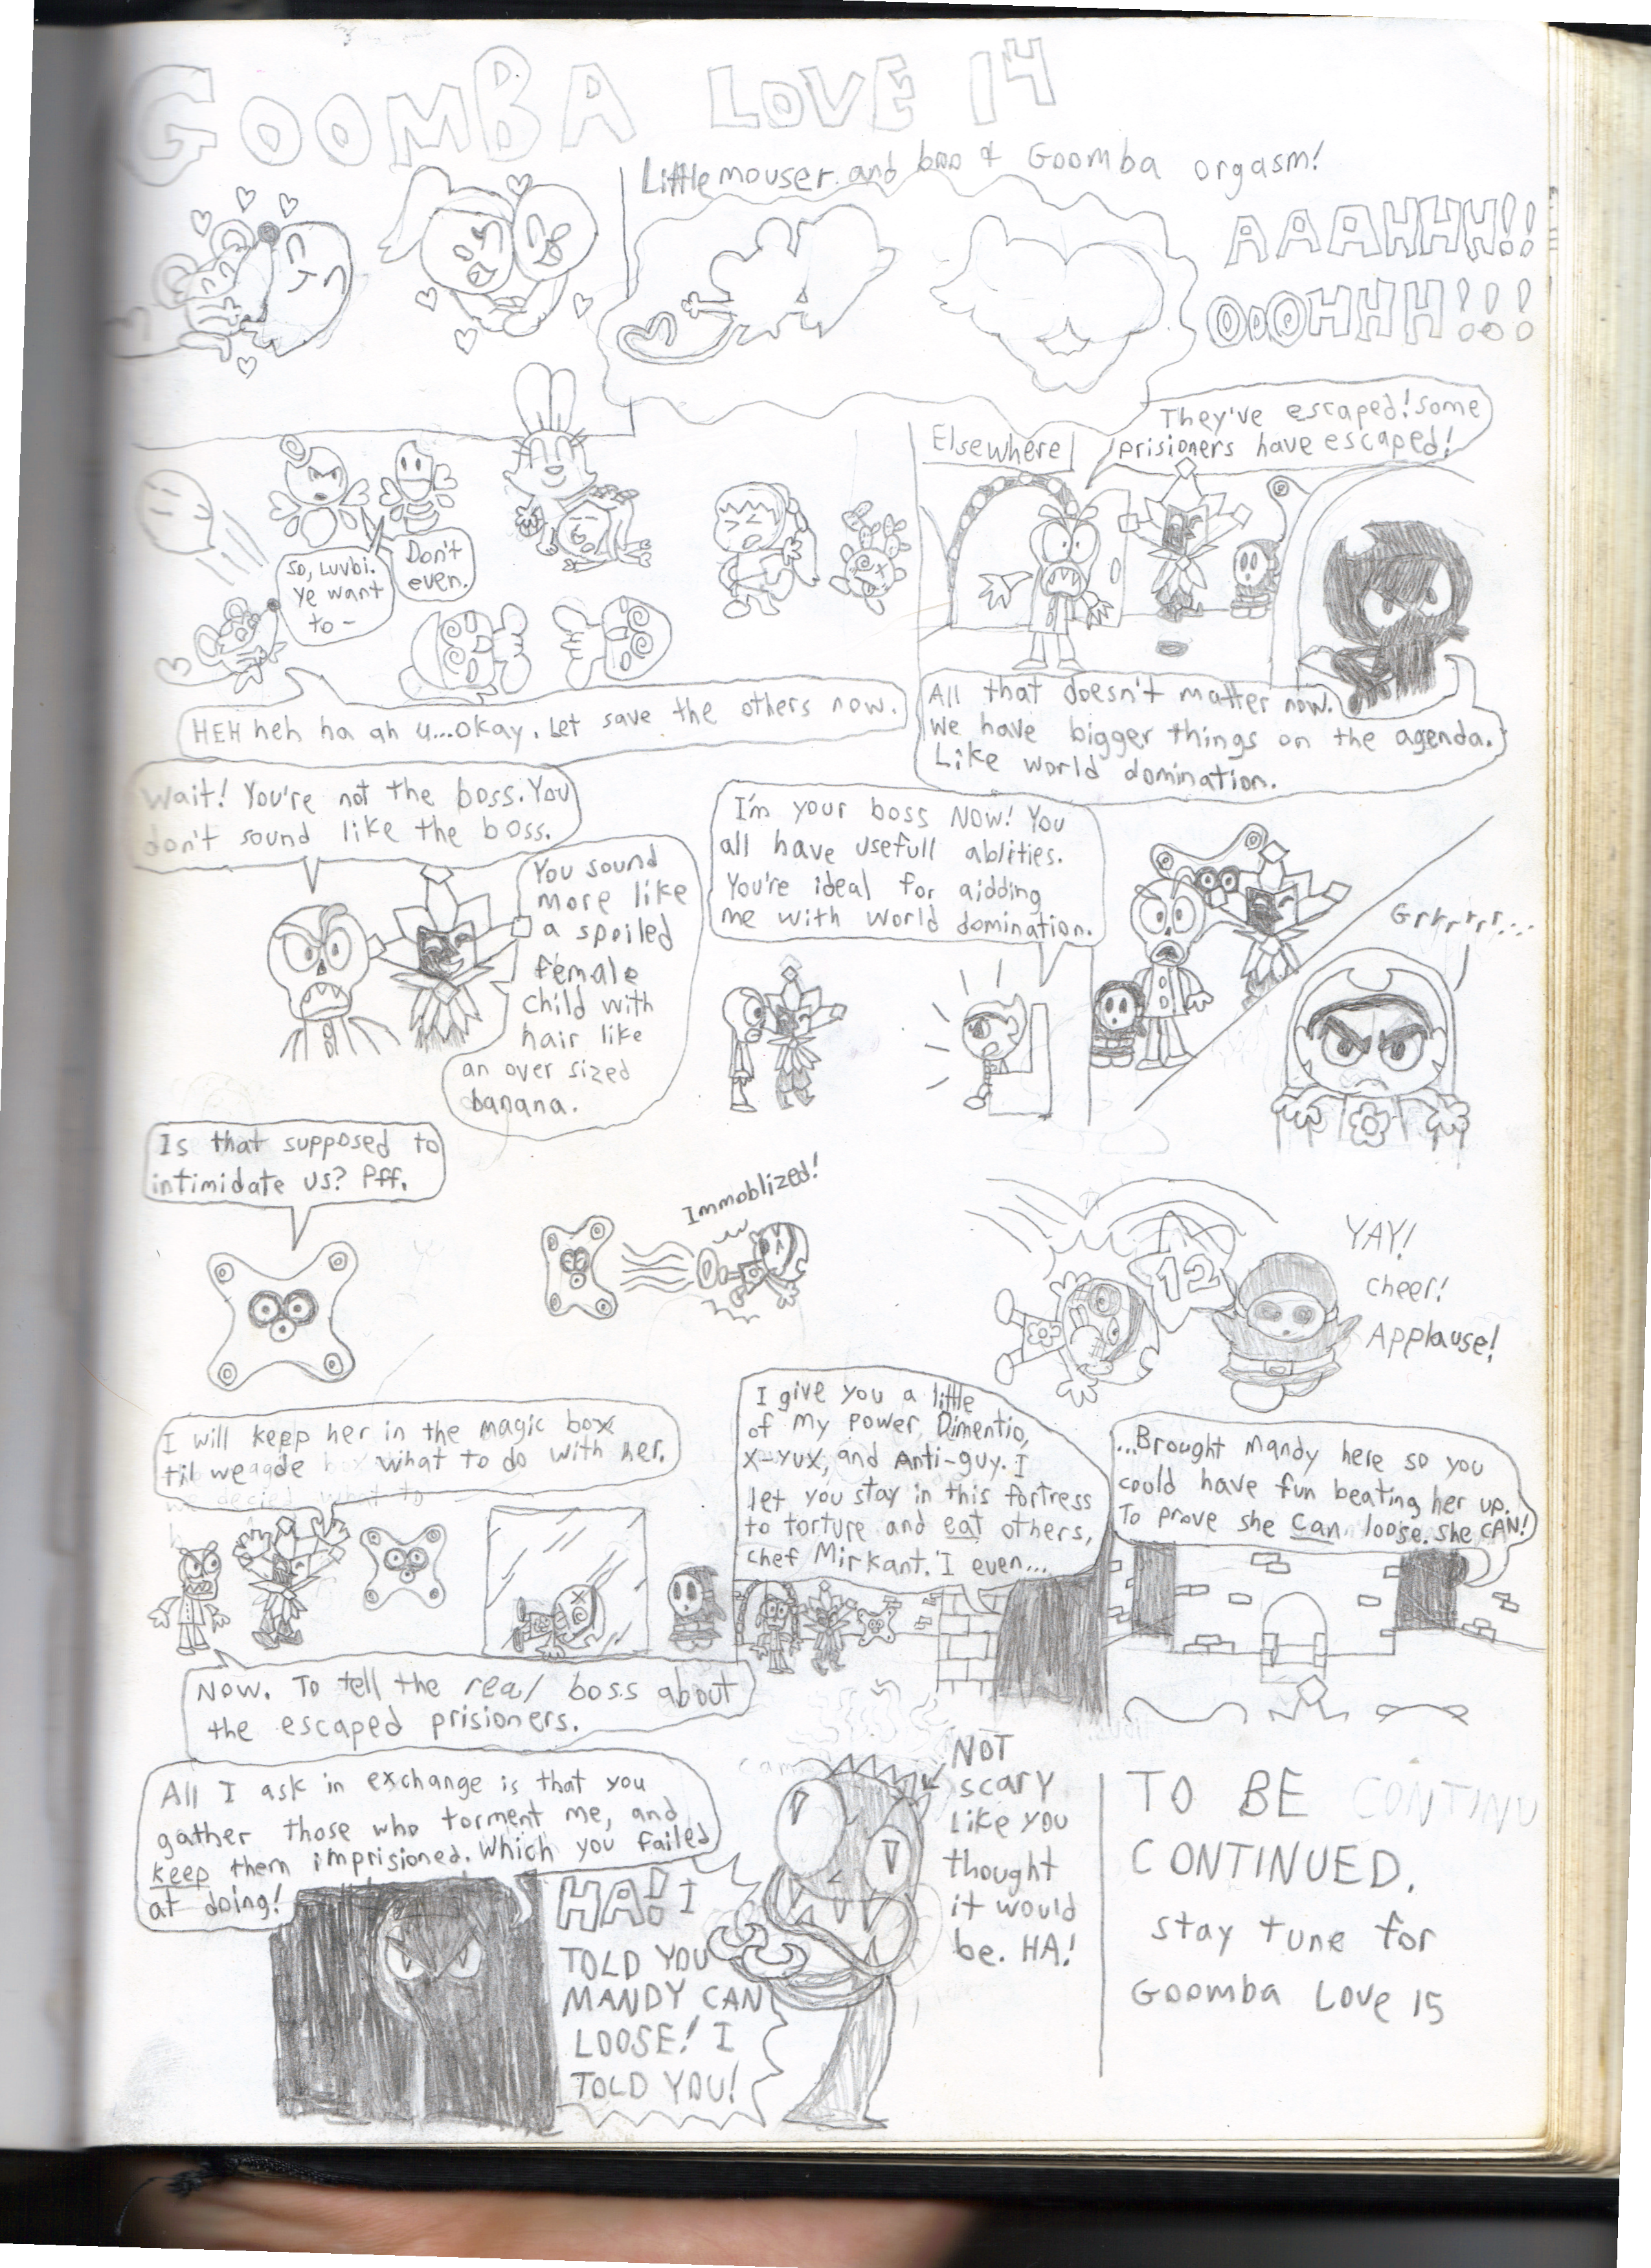 GOOMBA LOVE 14
Little mouser and boo & Goomba orgasm!
AAAHHH!!
OOOHHH!!!
So, Luvbi.
ye want
to -
Don't
even.
HEH heh ha ah u...okay. Let save the others now.
Elsewhere
They've escaped! Some
prisioners have escaped!
All that doesn't matter now.
we have bigger things on the agenda.
Like world domination.
Wait! You're not the boss. You
don't sound like the boss.
You sound
more like
a spoiled
female
child with
hair like
an over sized
banana.
I'm your boss NOW! You
all have usefull ablities.
You're ideal for aidding
me with world domination.
Grrrrrr...
Is that supposed to
intimidate us? Pff.
Immoblized!
12
YAY!
cheer!
Applause!
I will keep her in the magic box
til we what to do with her.
Now. To tell the real boss about
the escaped prisioners.
I give you a little
of my power, Dimentio,
X-yux, and Anti-guy. I
let you stay in this fortress
to torture and eat others,
chef Mirkant. I even...
...Brought Mandy here so you
could have fun beating her up.
To prove she can loose. she CAN!
All I ask in exchange is that you
gather those who torment me, and
keep them imprisioned. Which you failed
at doing!
HA! I
TOLD YOU
MANDY CAN
LOOSE! I
TOLD YOU!
NOT
scary
like you
thought
it would
be. HA!
TO BE CONTINU
CONTINUED.
stay tune for
Goomba Love 15